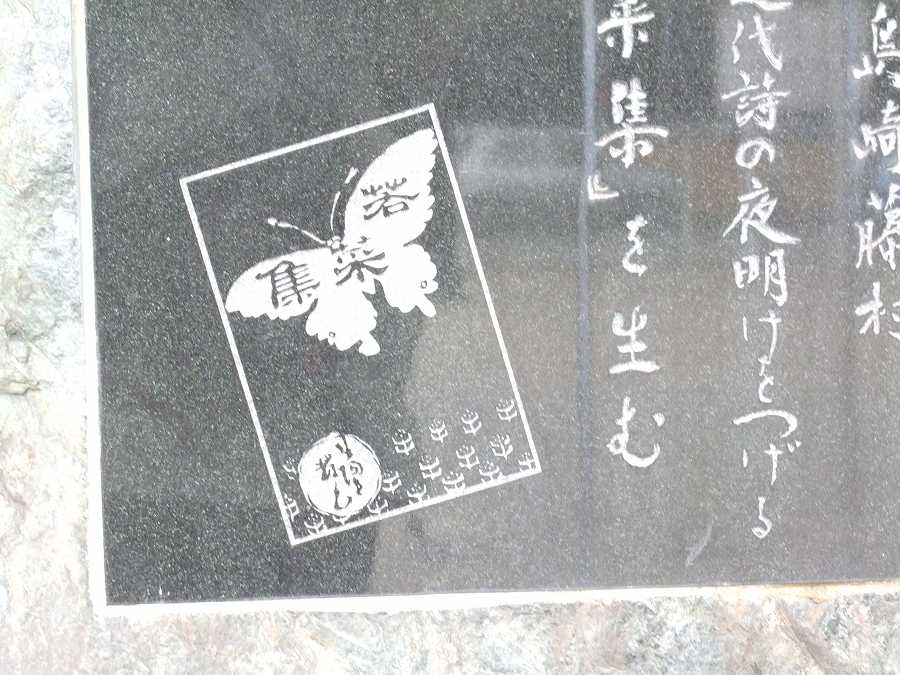 島崎藤村
近代詩の夜明けをつげる
菜集』を生む
若
菜
集